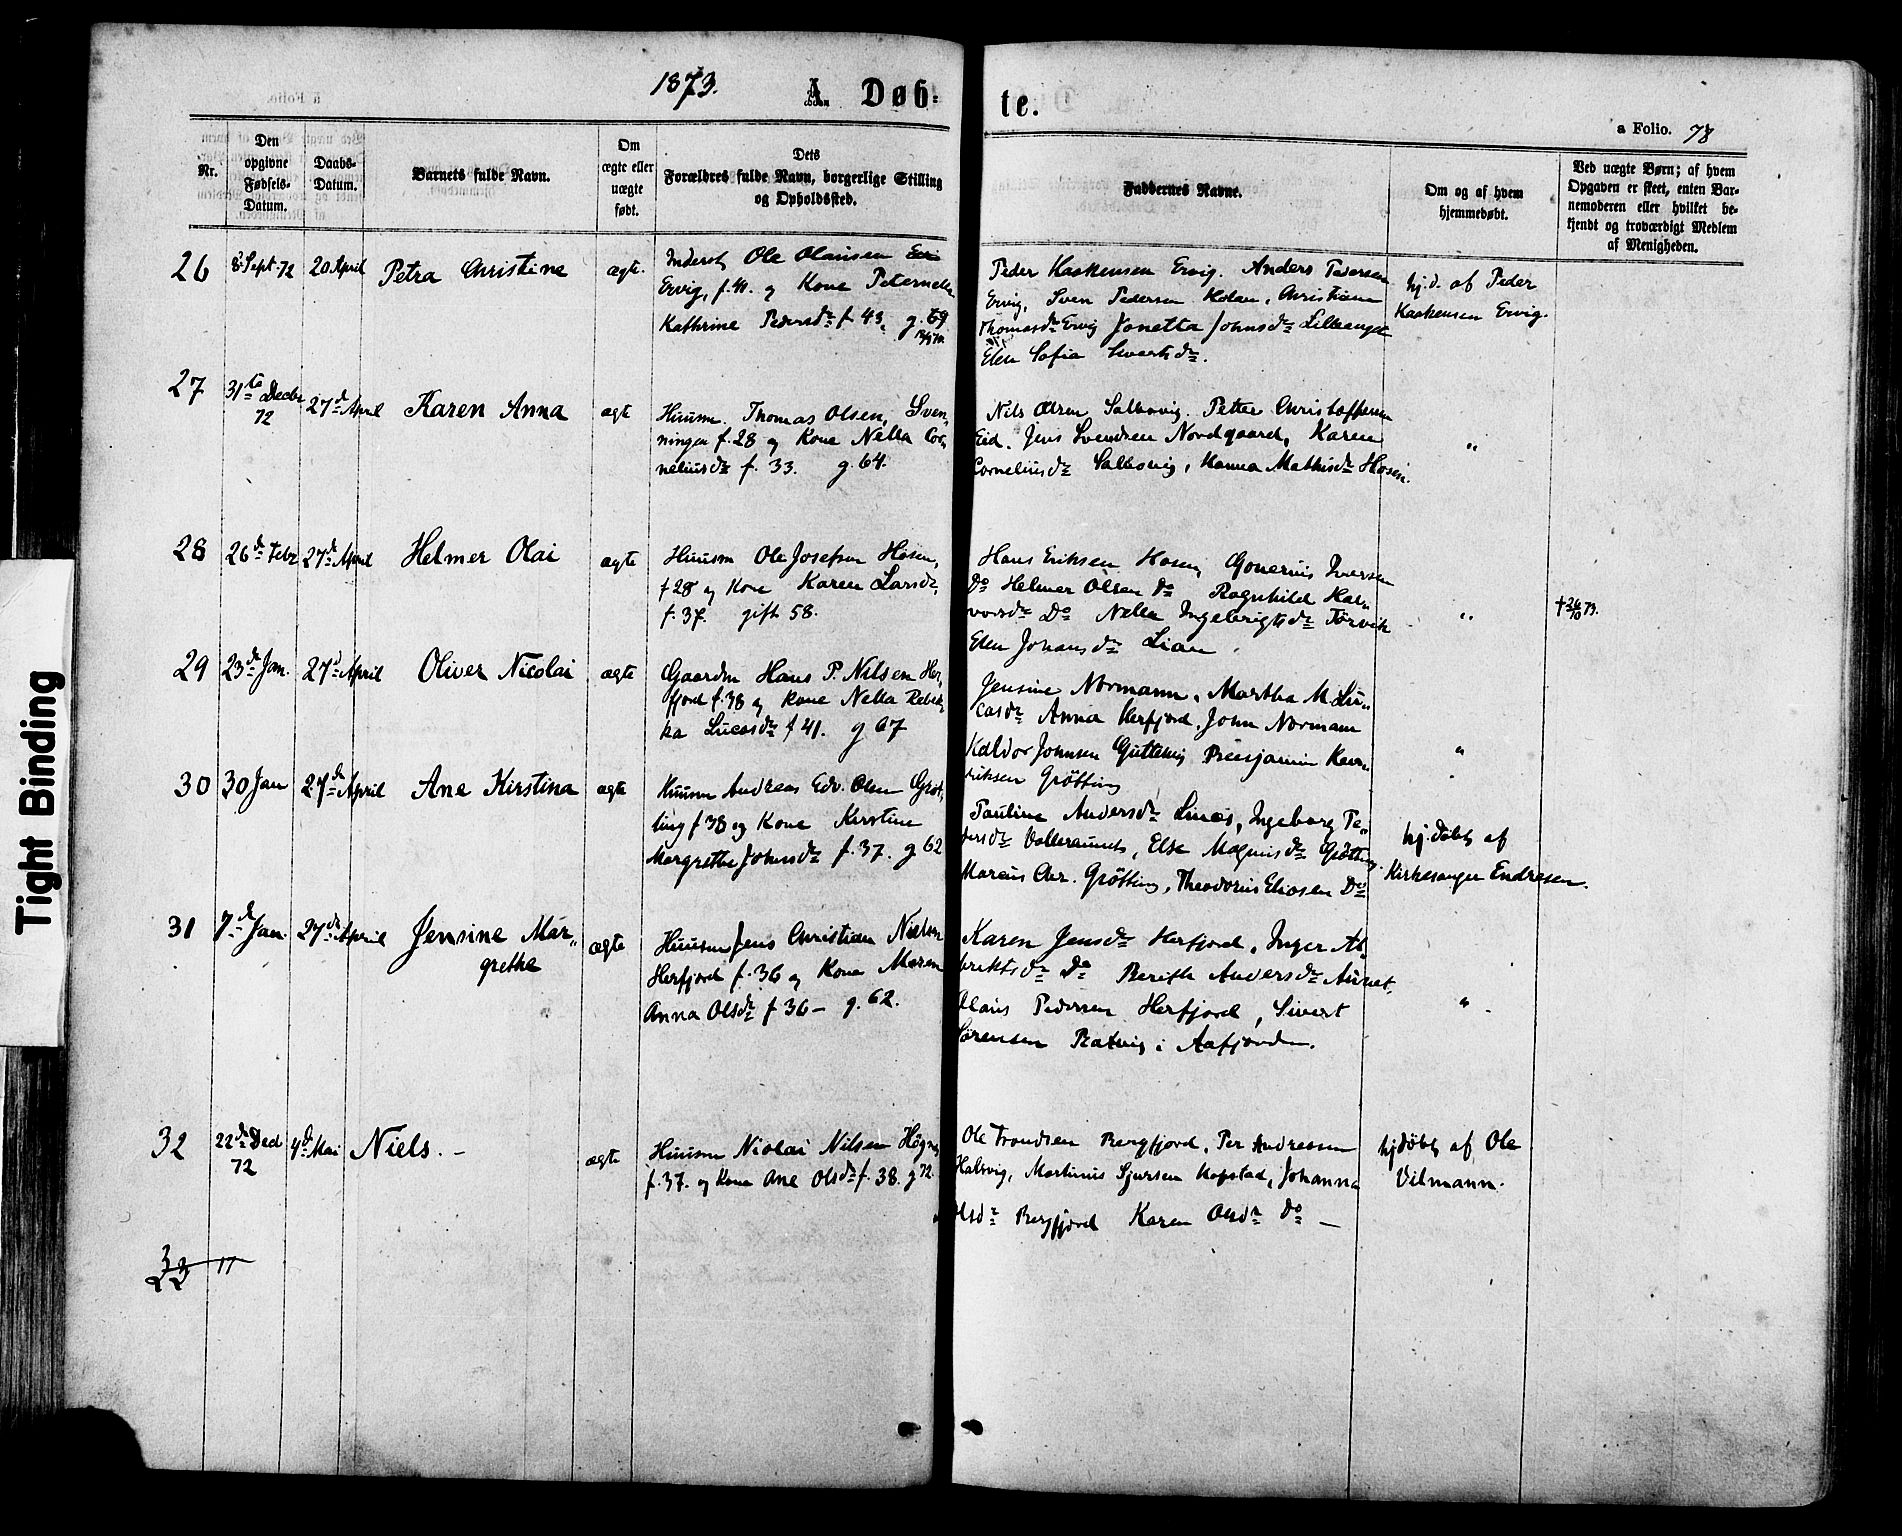 1873.
A. Døb-
te.
a Folio. 78
Nr.
Den opgivne Fødsels-Datum.
Daabs-Datum.
Barnets fulde Navn.
Om ægte eller uægte født.
Dets Forældres fulde Navn, borgerlige Stilling og Opholdssted.
Faddernes Navne.
Om og af hvem hjemmedøbt.
Ved uægte Børn; af hvem Opgaven er skeet, enten Barnemoderen eller hvilket bekjendt og troværdigt Medlem af Menigheden.
26
Sept. 72
20 April
Petra Christine
ægte.
Inderst Ole Olaisen
Ervig, f. 41. og Kone Peternella
Kathrine Pedersdr f. 43. g. 69
Peder Kaskensen Ervig. Anders Pedersen
Ervig, Sven Pedersen Holan, Christiane
Thomasdr Ervig Jonetta Johnsdr
Elen Sofia Sivertsdr.
hj.d. af Peder
Kaskensen Ervig.
27
31te Decbr
72
27d April
Karen Anna
ægte
Huusm. Thomas Olsen, Sven-
ningen f. 28 og Kone Nella Cor-
neliusdr f. 33. g. 64.
Nils Olsen Petter Christoffersen
Eid. Jens Svendsen Nordgaard, Karen
Corneliusdr Hanna Mathisdr Hosen.
"
28
26de Febr
27de April
Helmer Olai
ægte
Huusm Ole Josefsen Hosen,
f 28 og Kone Karen Larsdr,
f. 37. gift 58.
Hans Eriksen Hosen, Iversen
Do Helmer Olsen Do Ragnhild Hal-
vorsdr Do Nella Ingebrigtsdr Tørvik
Elen Johansdr Lian.
"
† 26/10 73.
29
23de Jan.
27d April
Oliver Nicolai
ægte
Gaardm Hans P. Nilsen Her-
fjord f. 38 og Kone Nella Rebek-
ka Lucasdr f 41. g 67
Jensine Normann, Martha M. Lu-
casdr Anna Herfjord, John Normann
Haldor Johnsen Benjamin Hen-
riksen Grøtting
"
30
30 Jan
27de April
Ane Kirstina
ægte
Huusm Andreas Edv. Olsen Grøt-
ting f 38 og Kone Kirstine
Margrethe Johnsdr f. 37. g 62
Pauline Andersdr Lines, Ingeborg Pe-
dersdr Valleraunet, Else Magnusdr Grøtting
Marcus Chr. Grøtting, Theodorius Eliasen Do
hj.døbt af
Kirkesanger Endresen.
31
7de Jan.
27de April
Jensine Mar-
grethe
ægte
Huusm Jens Christian Nielsen
Herfjord f. 36 og Kone Maren
Anna Olsdr f 36 – g. 62.
Karen Jensdr Herfjord, Inger Al-
briktsdr Do Berith Andersdr Aunet,
Olaus Pedersen Herfjord, Sivert
Sørensen Ratvig i Aafjorden.
"
32
22de Decb
72
4de Mai
Niels. –
ægte
Huusm Nicolai Nilsen
f. 37. og Kone Ane Olsdr f. 38. g 72.
Ole Trondsen Bergfjord, Per Andreassen
Halsvig, Martinus Sjursen Hopstad, Johanna
Olsdr Bergfjord Karen Olsdr Do –
hjdøbt af Ole
Vilmann.
33 "
Tight Binding